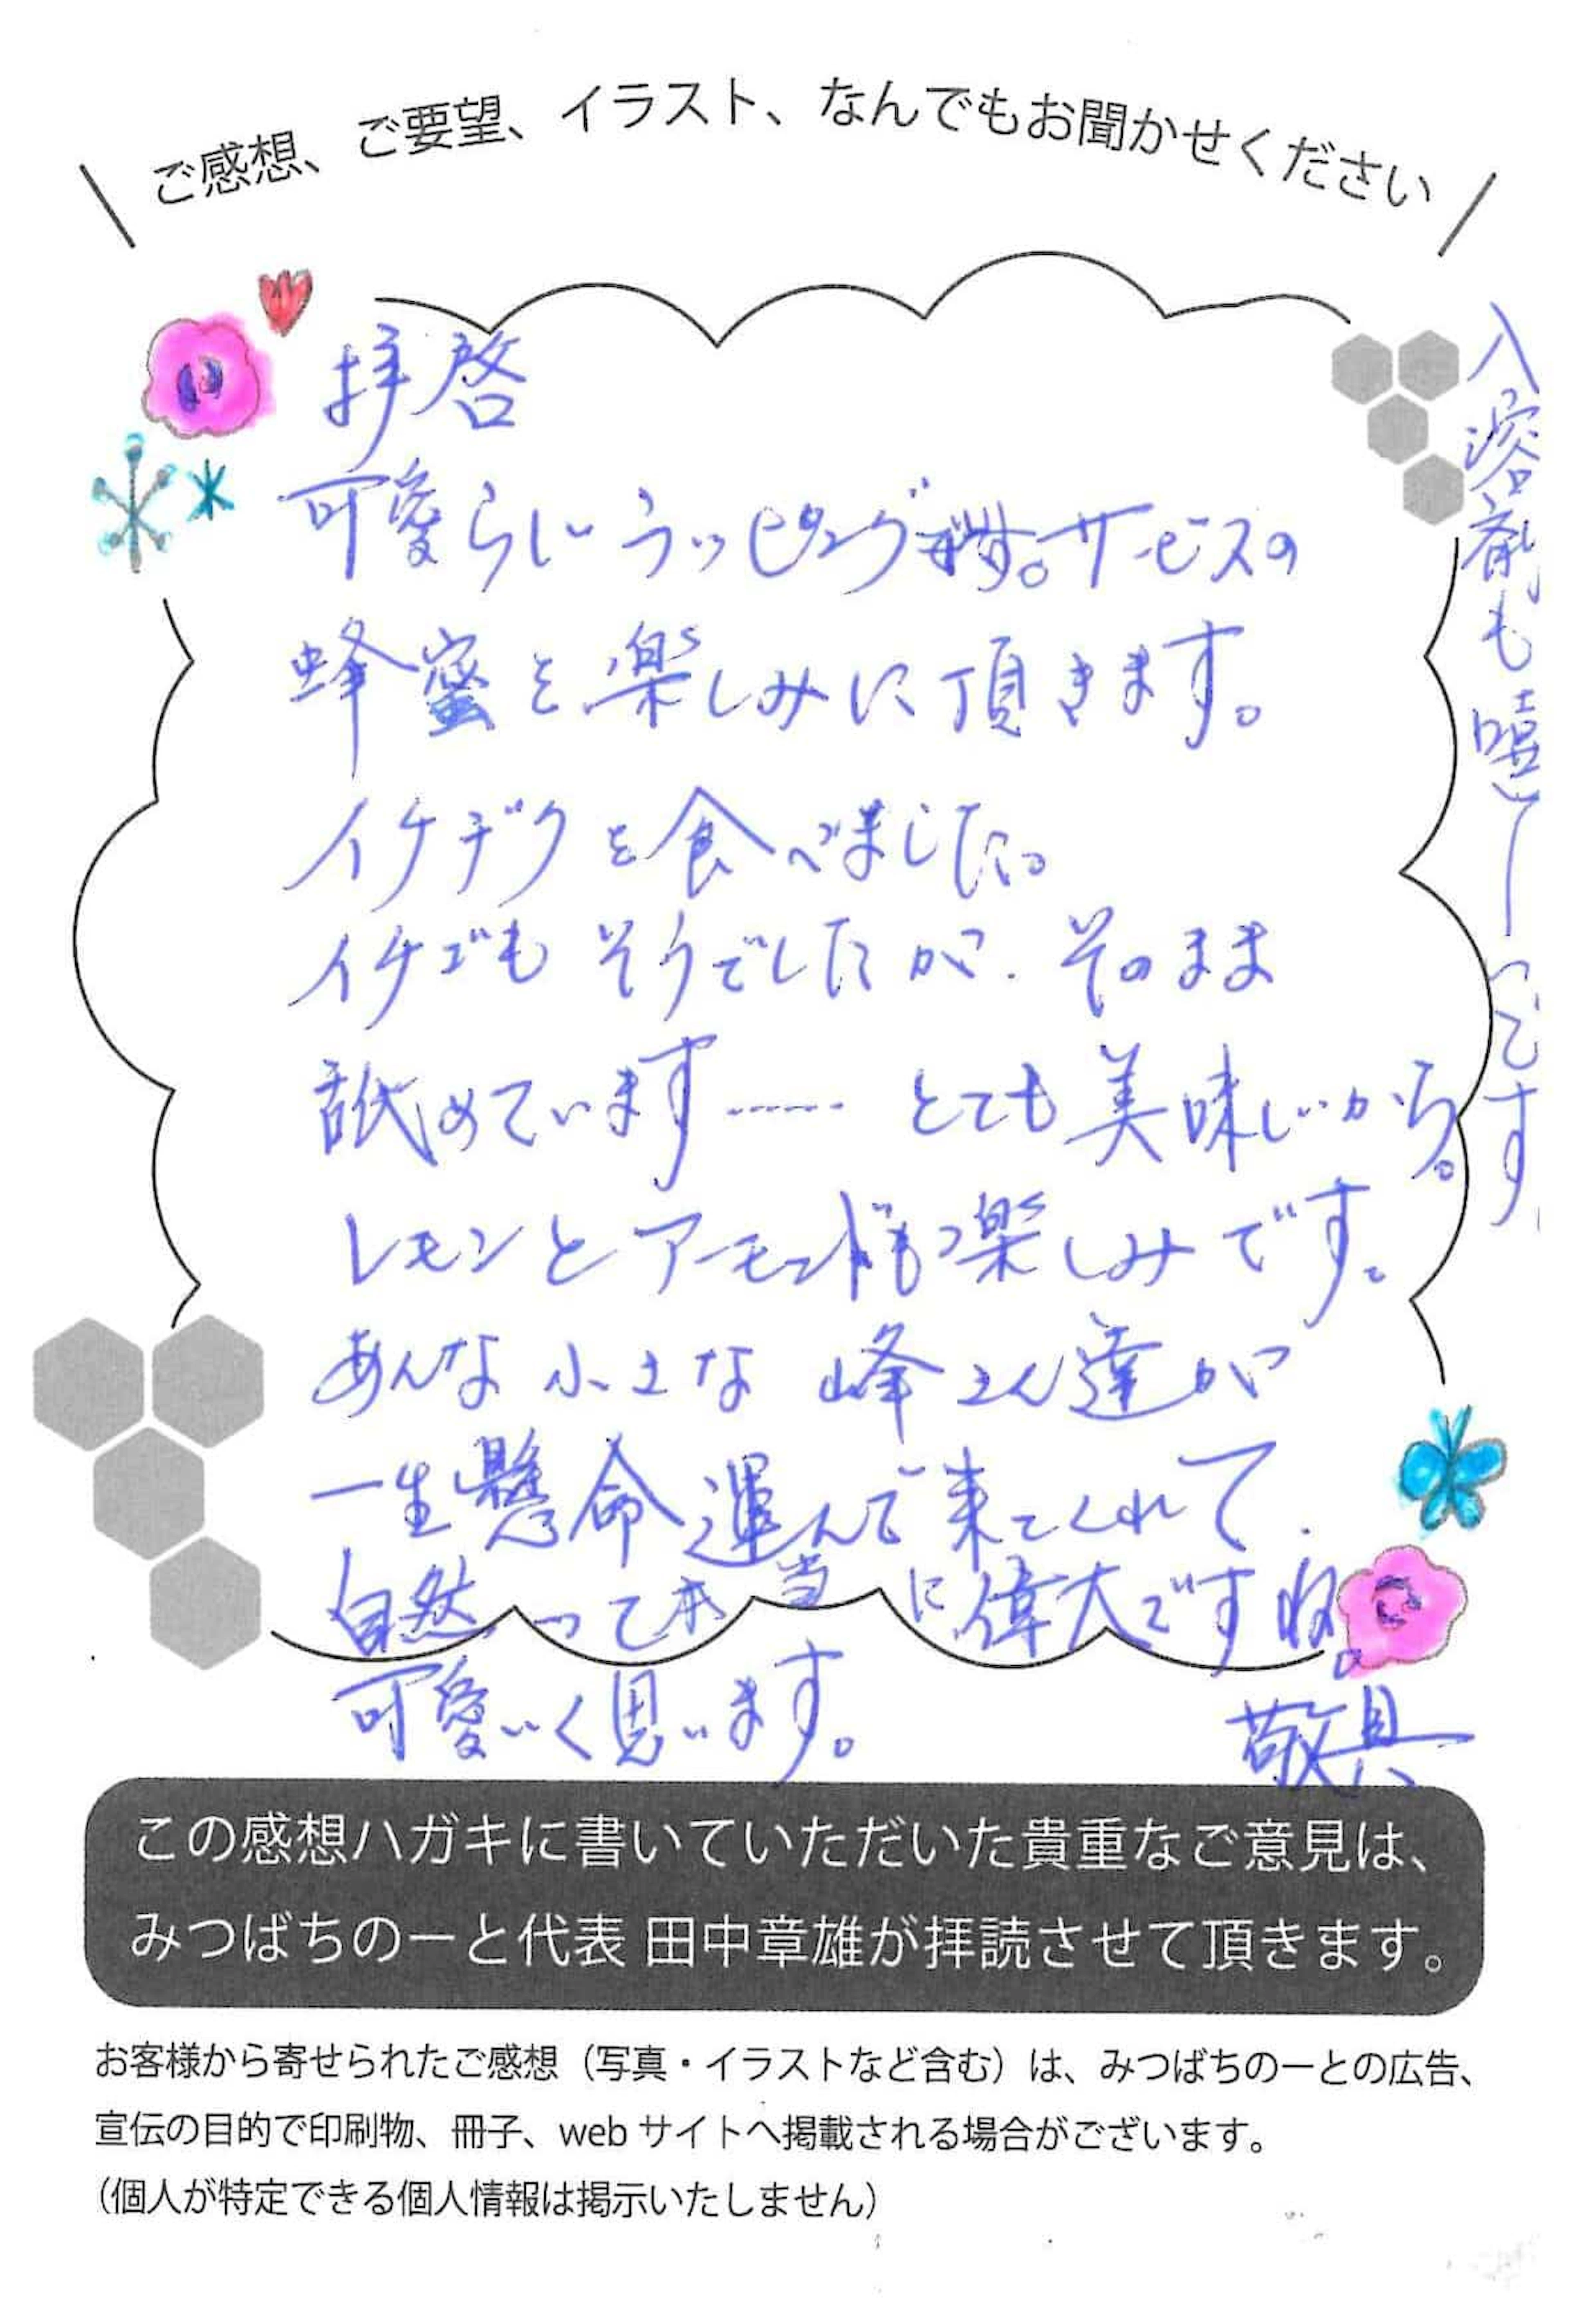 ご感想、ご要望、イラスト、なんでもお聞かせください
拝啓
可愛らしいラッピングです。サービスの
蜂蜜を楽しみに頂きます。
イチヂクを食べました。
イチゴもそうでしたが、そのまま
舐めています…… とても美味しいから。
レモンとアーモンドも楽しみです。
あんな小さな峰さん達が
一生懸命運んで来てくれて、
自然って本当に偉大ですね。
可愛いく思います。
敬具
入溶剤も嬉しいです
この感想ハガキに書いていただいた貴重なご意見は、
みつばちのーと代表 田中章雄が拝読させて頂きます。
お客様から寄せられたご感想（写真・イラストなど含む）は、みつばちのーとの広告、
宣伝の目的で印刷物、冊子、web サイトへ掲載される場合がございます。
（個人が特定できる個人情報は掲示いたしません）